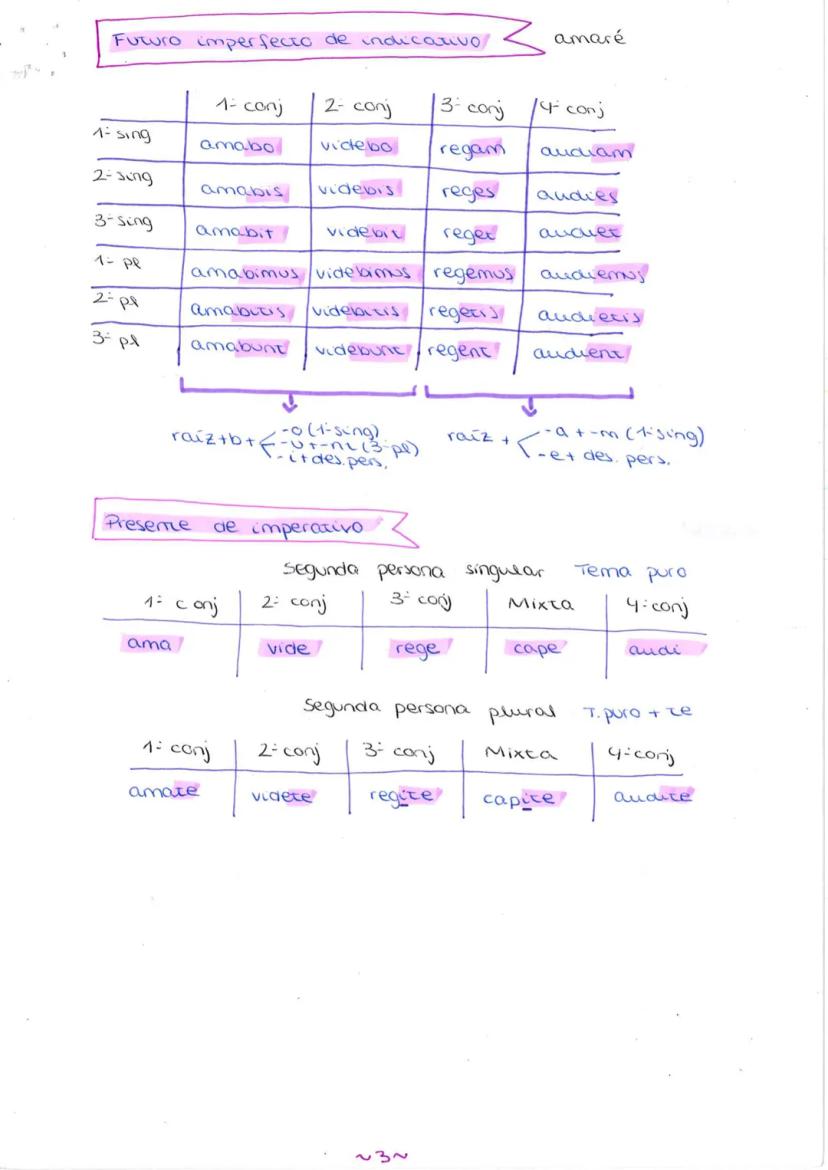 Futuro imperfecto de indicativo amaré
1ª conj 2ª conj 3ª conj 4ª conj
1ª sing amabo videbo regam audiam
2ª sing amabis videbis reges audies
3ª sing amabit videbit reget audiet
1ª pl amabimus videbimus regemus audiemus
2ª pl amabitis videbitis regetis audietis
3ª pl amabunt videbunt regent audient
raíz+b+ -o (1ª sing) raíz + -a + -m (1ª sing)
-u + -nt (3ª pl) -e + des. pers.
-i + des. pers.
Presente de imperativo
Segunda persona singular Tema puro
1ª conj 2ª conj 3ª conj Mixta 4ª conj
ama vide rege cape audi
Segunda persona plural T. puro + te
1ª conj 2ª conj 3ª conj Mixta 4ª conj
amate videte regite capite audite
~3~